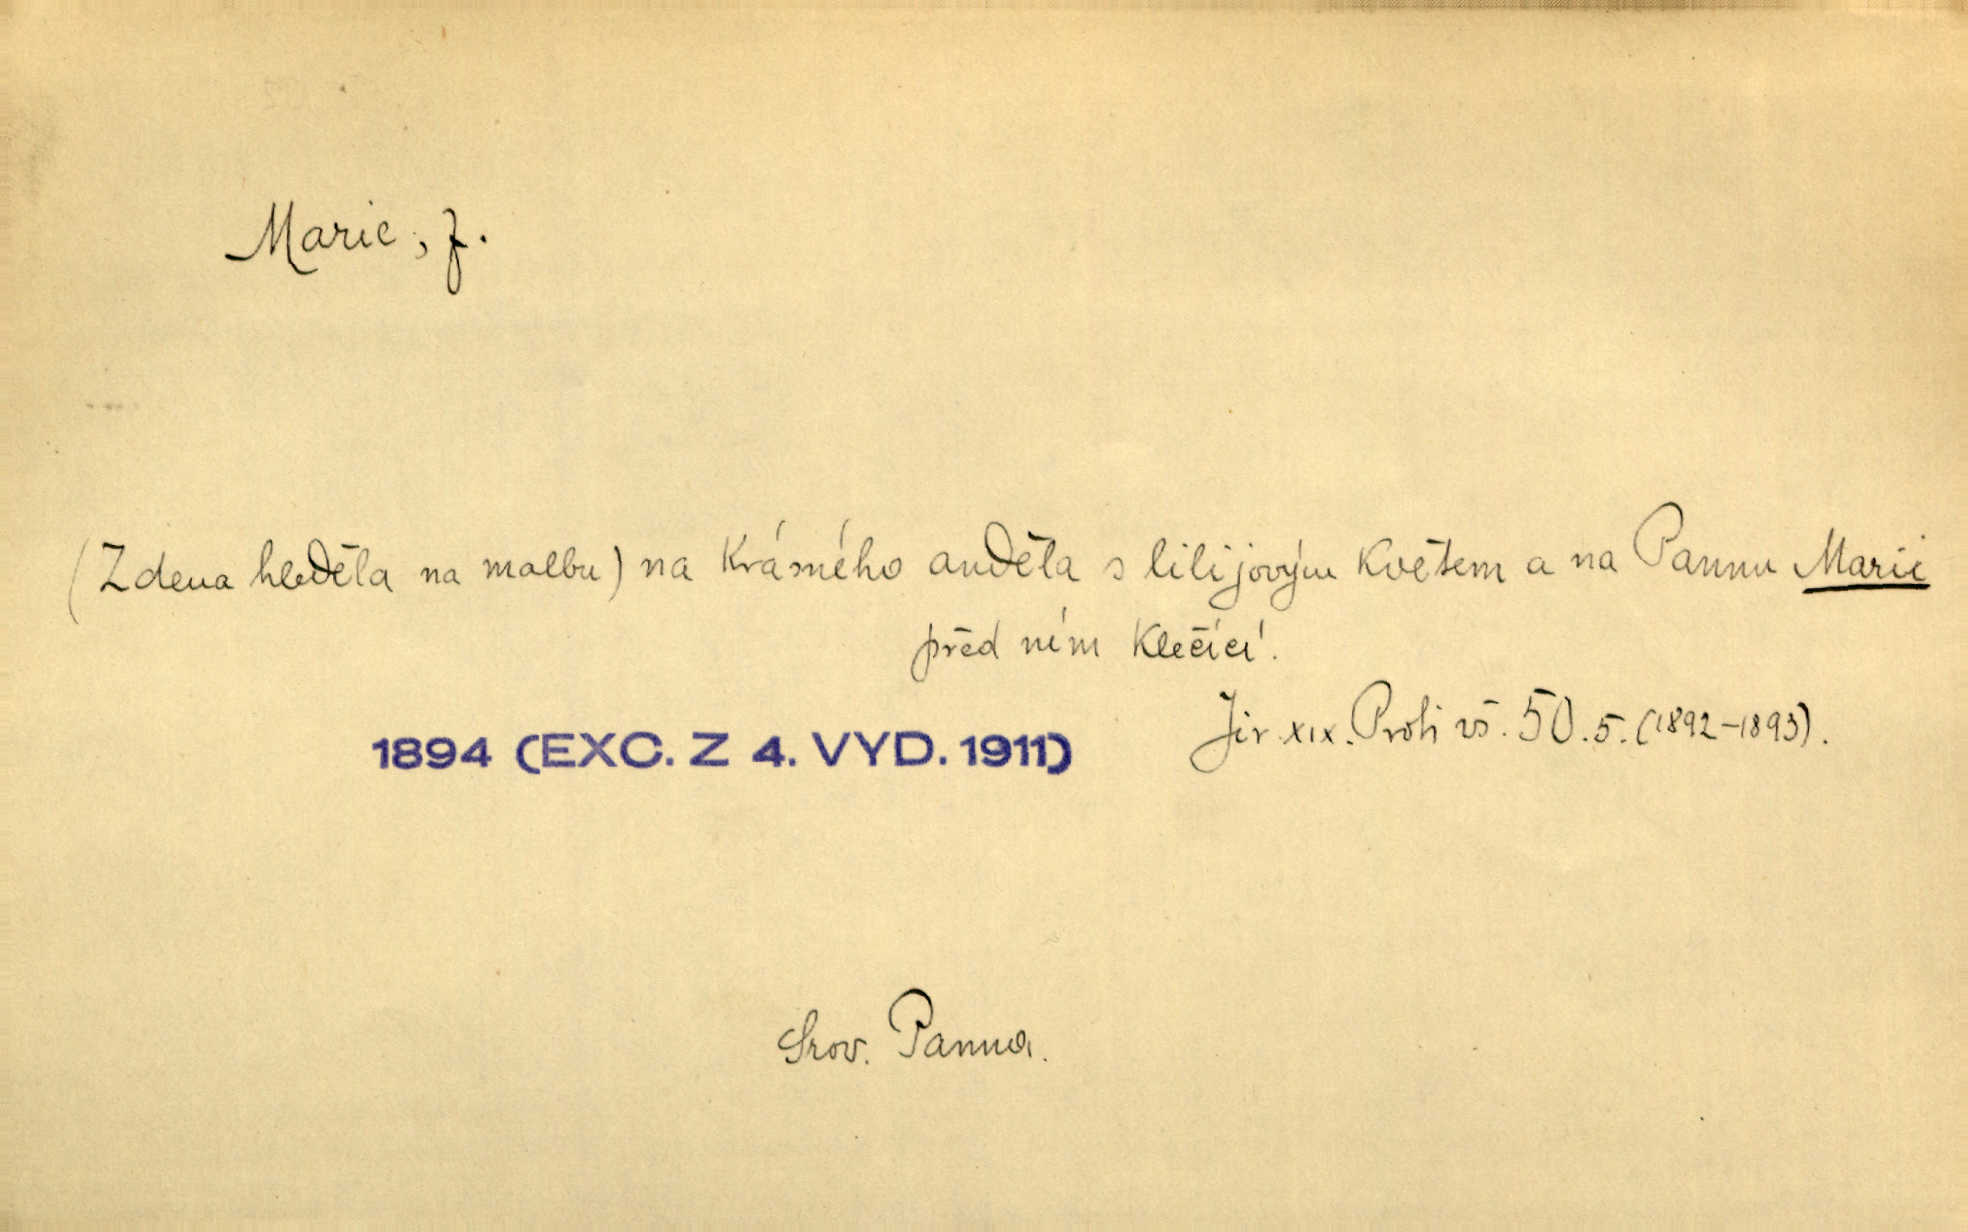 Marie, f.
(Zdena hleděla na malbu) na krásného anděla s lilijovým květem a na Pannu Marii
před ním klečící.
Jir. XIX. Proti vš. 50. 5. (1892-1893).
1894 (EXC. Z 4. VYD. 1911)
Srov. Panna.